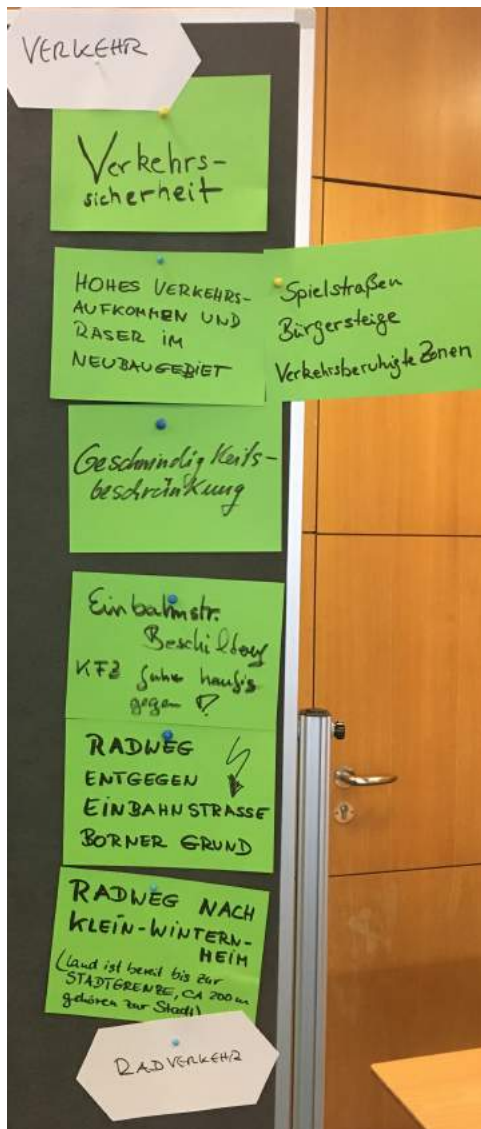 VERKEHR
Verkehrs-
sicherheit
HOHES VERKEHRS-
AUFKOMMEN UND
RASER IM
NEUBAUGEBIET
Spielstraßen
Bürgersteige
Verkehrsberuhigte Zonen
Geschwindigkeits-
beschränkung
Einbahnstr.
KFZ
gegen
RADWEG
ENTGEGEN
EINBAHNSTRASSE
BORNER GRUND
RADWEG NACH
KLEIN-WINTERN-
HEIM
(Land ist bereit bis zur
STADTGRENZE, CA 200 m
gehören zur Stadt)
RADVERKEHR